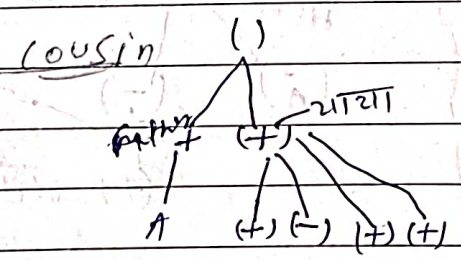 cousin ( )
father + (+) चाचा
A (+) (-) (+) (+)